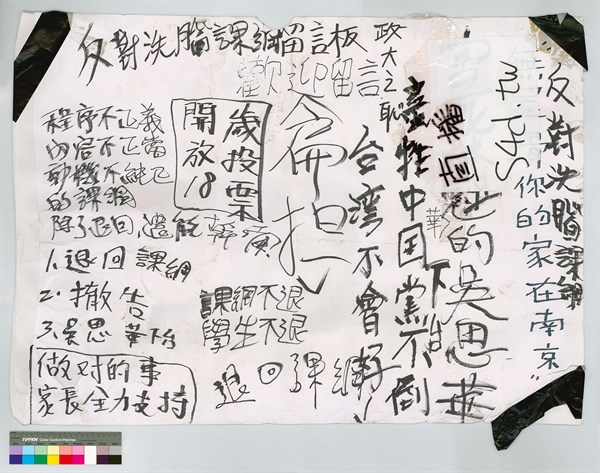 反對洗腦課綱留言板
歡迎留言
政大之恥
反對洗腦課綱
你的家在南京"
的吳思華
華
下台
中国黨不倒
台灣不會好!
開放18
歲投票
程序不正義
內容不正當
動機不純正
的課綱
除了退回,還能幹
1.退回課綱
2.撤告
3.吳思華下台
課綱不退
學生不退
退回課綱
做对的事
家長全力支持
TIFFEN Color Control Patches